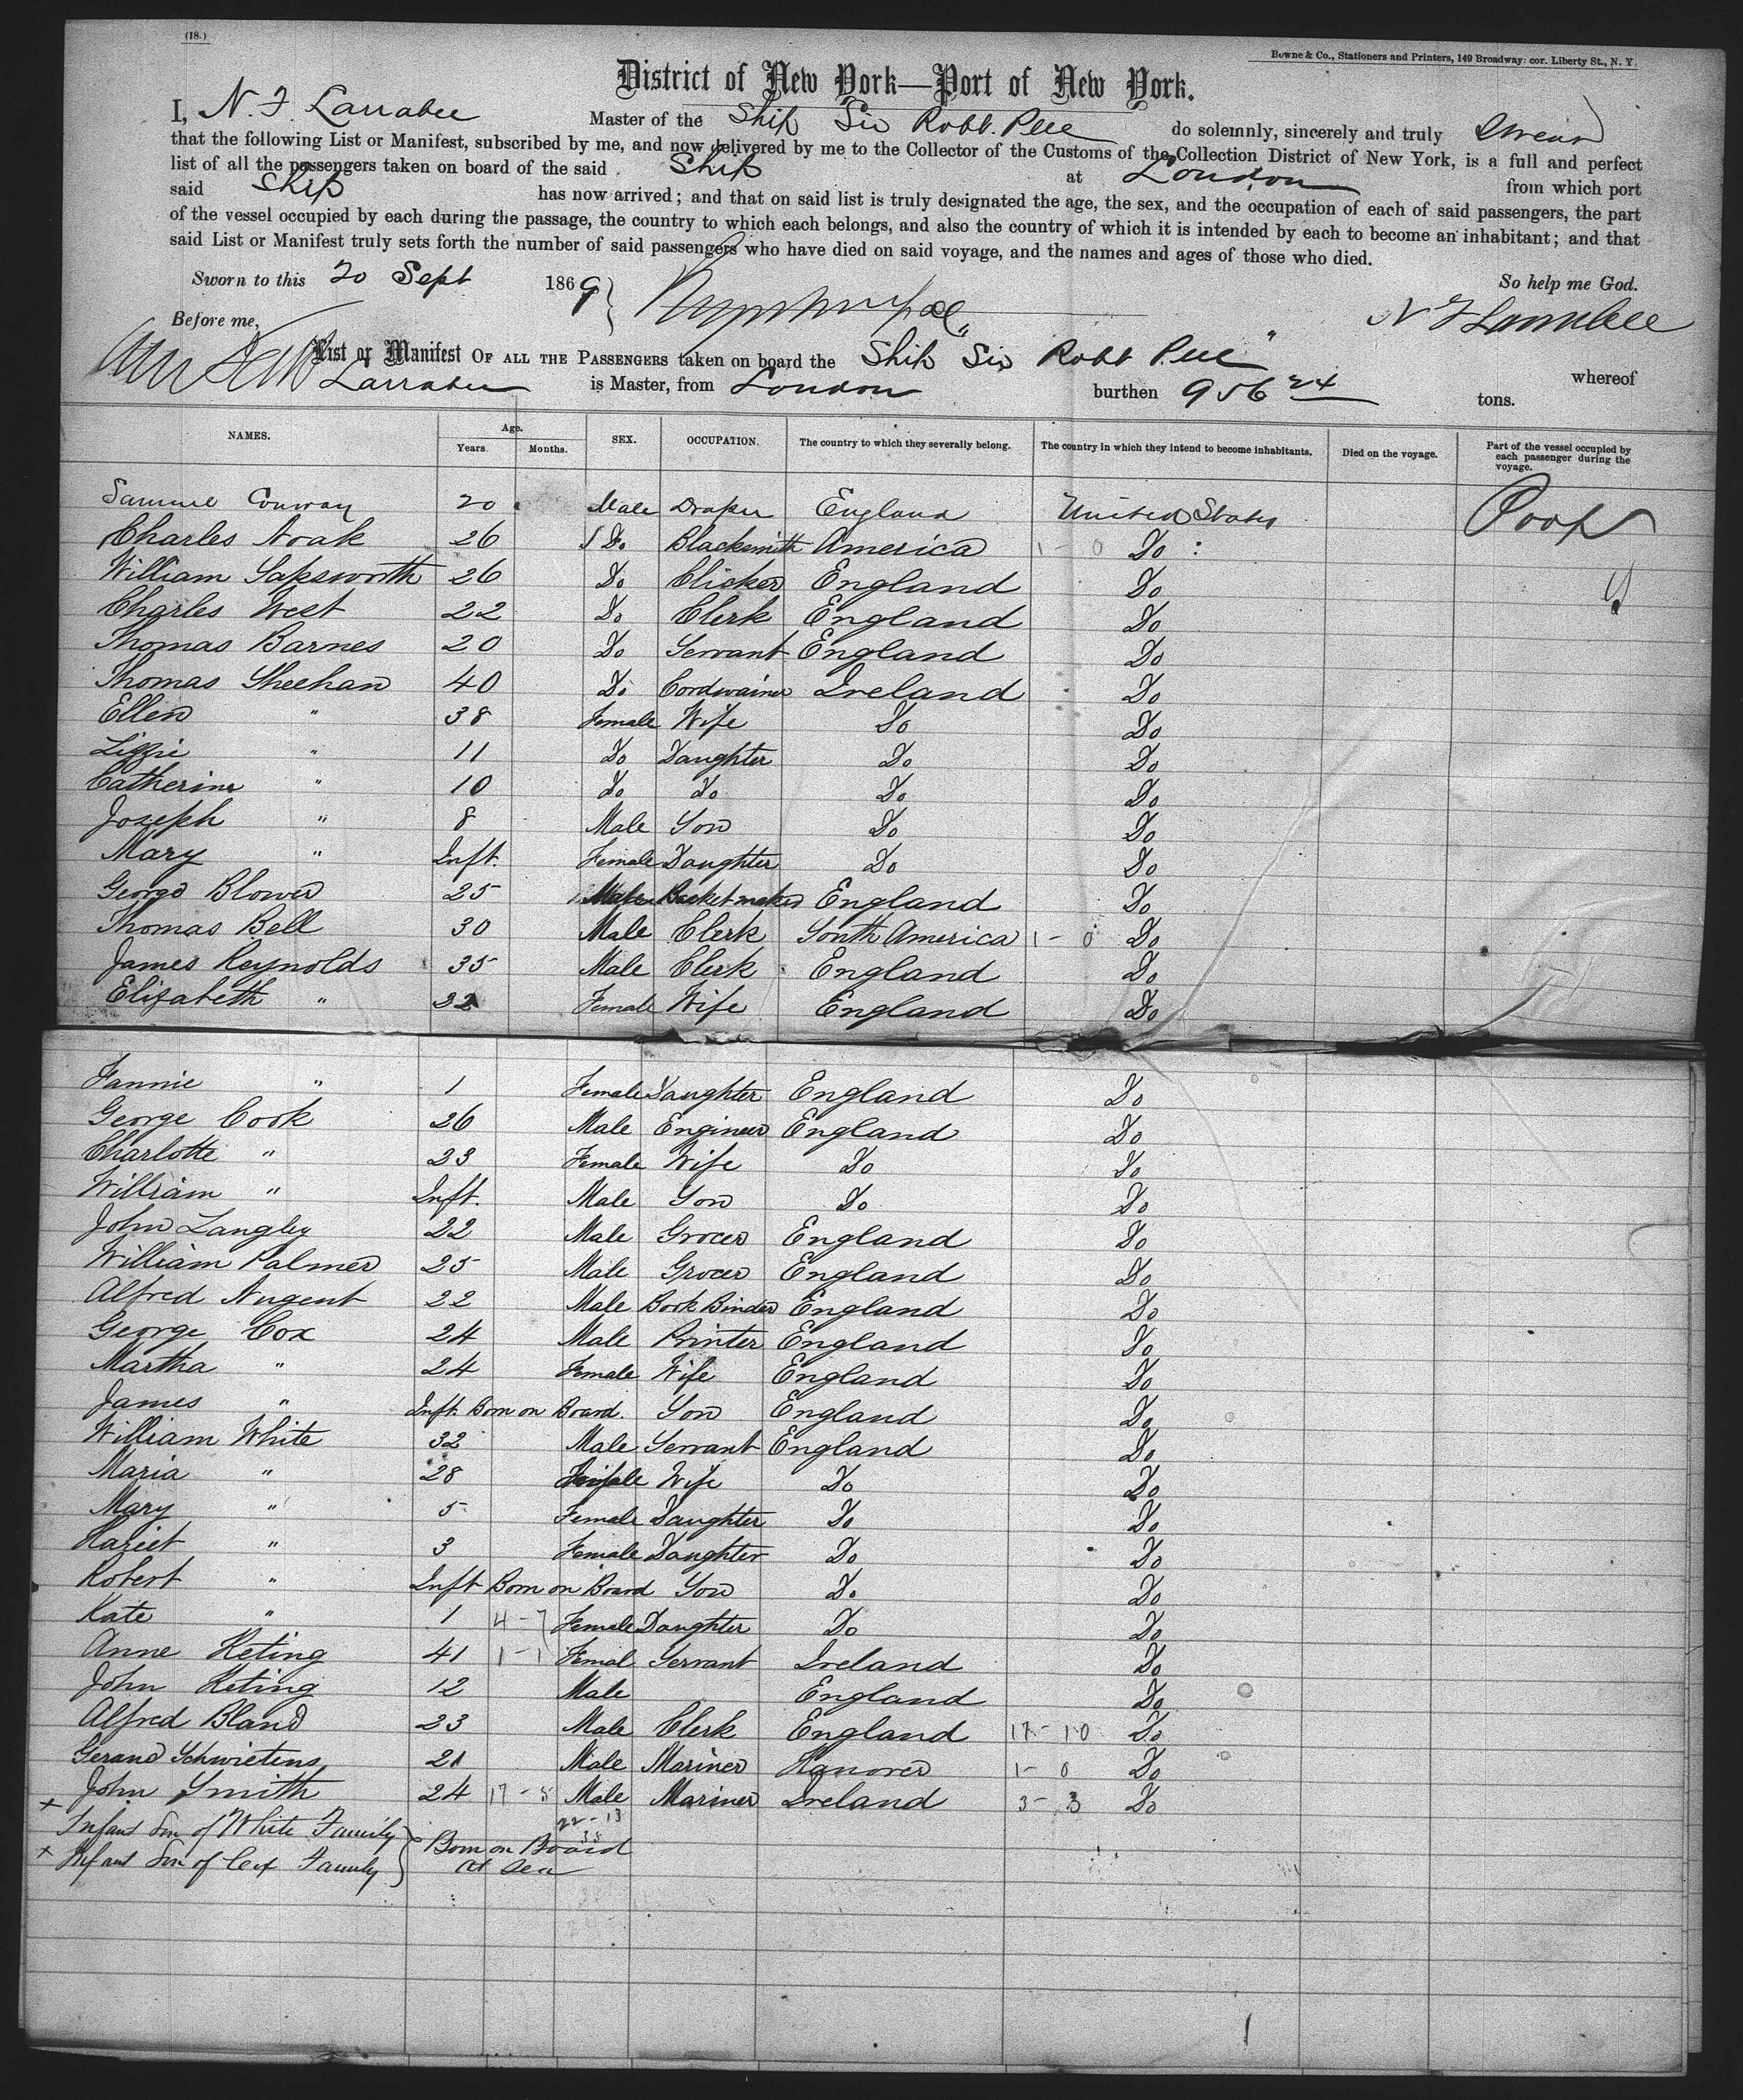 (18.)
Bowne & Co., Stationers and Printers, 149 Broadway: cor. Liberty St., N. Y.
District of New York—Port of New York.
I, N. F. Larrabee Master of the Ship Sir Robt. Peel do solemnly, sincerely and truly swear
that the following List or Manifest, subscribed by me, and now delivered by me to the Collector of the Customs of the Collection District of New York, is a full and perfect
list of all the passengers taken on board of the said Ship at London from which port
said Ship has now arrived; and that on said list is truly designated the age, the sex, and the occupation of each of said passengers, the part
of the vessel occupied by each during the passage, the country to which each belongs, and also the country of which it is intended by each to become an inhabitant; and that
said List or Manifest truly sets forth the number of said passengers who have died on said voyage, and the names and ages of those who died.
Sworn to this 20 Sept 1869 So help me God.
Before me, N F Larrabee
List or Manifest OF ALL THE PASSENGERS taken on board the Ship "Sir Robt Peel" whereof
Larrabee is Master, from London burthen 956 24 tons.
NAMES. Age. Years. Months. SEX. OCCUPATION. The country to which they severally belong. The country in which they intend to become inhabitants. Died on the voyage. Part of the vessel occupied by each passenger during the voyage.
Samuel Conway 20 Male Draper England United States Poop
Charles Noak 26 Do Blacksmith America 1 - 0 Do
William Sapsworth 26 Do Clicker England Do
Charles West 22 Do Clerk England Do
Thomas Barnes 20 Do Servant England Do
Thomas Sheehan 40 Do Cordwainer Ireland Do
Ellen " 38 Female Wife Do Do
Lizzie " 11 Do Daughter Do Do
Catherine " 10 Do Do Do Do
Joseph " 8 Male Son Do Do
Mary " Inft. Female Daughter Do Do
George Blower 25 Male Basketmaker England Do
Thomas Bell 30 Male Clerk South America 1 - 0 Do
James Reynolds 35 Male Clerk England Do
Elizabeth " 32 Female Wife England Do
Fannie " 1 Female Daughter England Do
George Cook 26 Male Engineer England Do
Charlotte " 23 Female Wife Do Do
William " Inft. Male Son Do Do
John Langley 22 Male Grocer England Do
William Palmer 25 Male Grocer England Do
Alfred Nugent 22 Male Book Binder England Do
George Cox 24 Male Printer England Do
Martha " 24 Female Wife England Do
James " Inft. Born on Board. Son England Do
William White 32 Male Servant England Do
Maria " 28 Female Wife Do Do
Mary " 5 Female Daughter Do Do
Hariet " 3 Female Daughter Do Do
Robert " Inft Born on Board Son Do Do
Kate " 1 4 - 7 Female Daughter Do Do
Anne Keting 41 1 - 1 Femal Servant Ireland Do
John Keting 12 Male England Do
Alfred Bland 23 Male Clerk England 17 - 10 Do
Gerand Schwietens 21 Male Mariner Hanover 1 - 0 Do
John Smith 24 17 - 5 Male Mariner Ireland 3 - 3 Do
x Infant Son of White Family 22 - 13
x Infant Son of Cox Family } Born on Board 35
at Sea